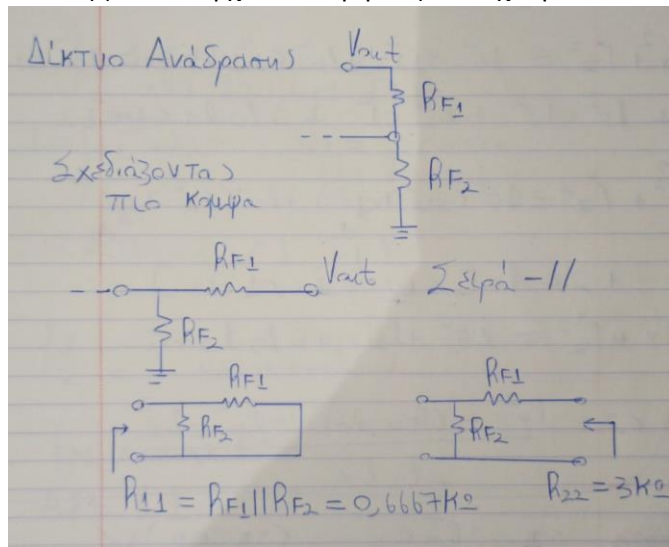 Δίκτυο Ανάδρασης
Vout
RF1
RF2
Σχεδιάζοντας
πιο κομψα
RF1
Vout
Σειρά-//
RF2
RF1
RF2
RF1
RF2
R11 = RF1||RF2 = 0,6667ΚΩ
R22 = 3ΚΩ